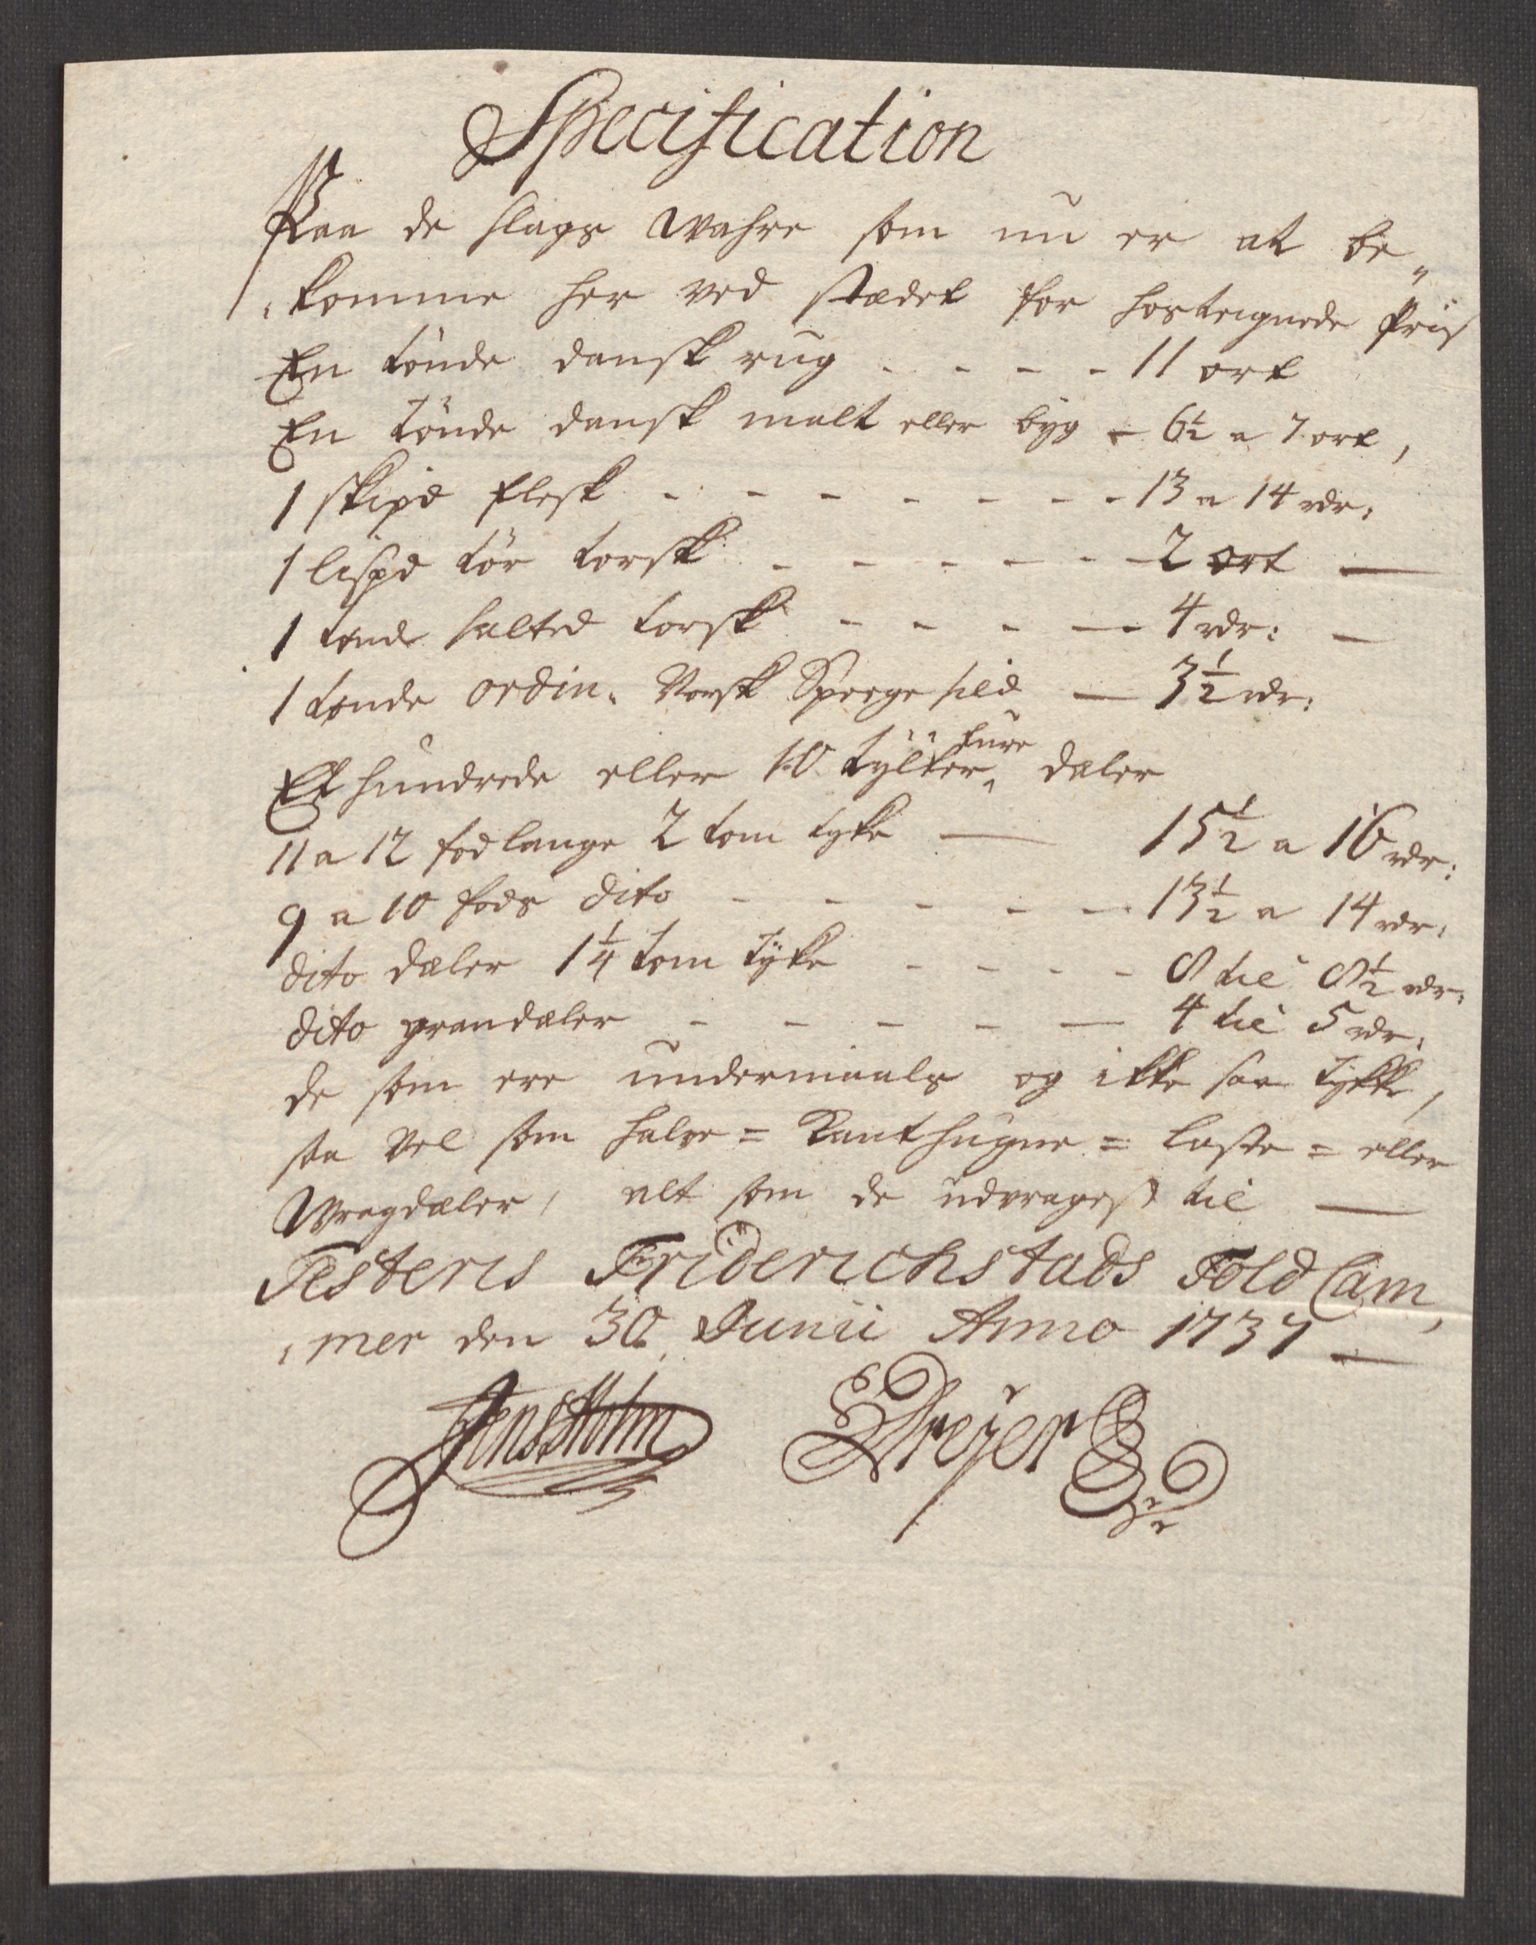 Specification
Paa de slags Wahre som nu er at be„
„komme her ved stædet for hostegnede Priis
En tönde dansk rug - - - - 11 ort
En tönde dansk malt eller byg - 6½ a 7 ort,
1 skipd flesk - - - - - - - 13 a 14 rdr:
1 lispd tör torsk - - - - - - 2 ort —
1 tønde salted torsk - - - — 4 rdr: —
1 tønde ordin. Norsk Speege sild — 3½ rdr:
Et hundrede eller 10 tylter furre daler
11 a 12 fod lange 2 tom tyke — 15½ a 16 rdr:
9 a 10 fods dito - - - - - 13½ a 14 rdr:
dito dæler 1¼ tom tyke - - - - 8 til 8½ rdr:
dito grandæler - - - - — 4 til 5 rdr:
de som ere undermaals og ikke saa tykke,
saa vel som halve = Kanthugne = Laste = eller
Wragdæler, alt som de udvrages til —
Testeris Friderichstads Told Cam„
„mer den 30 Junii Anno 1737 —
Jens Holm Dreyer